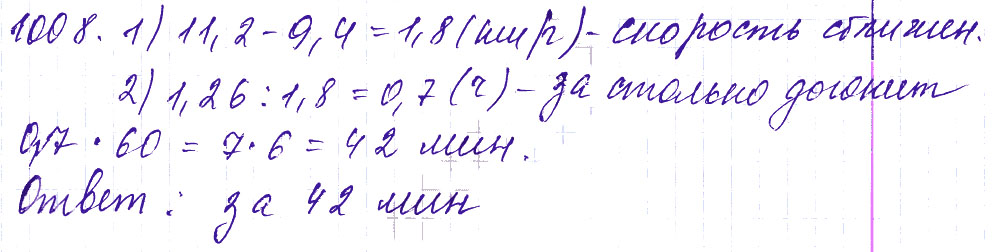 1008. 1) 11,2 - 9,4 = 1,8 (км/ч) - скорость сближен.
2) 1,26 : 1,8 = 0,7 (ч) - за столько догонит
0,7 · 60 = 7 · 6 = 42 мин.
Ответ: за 42 мин